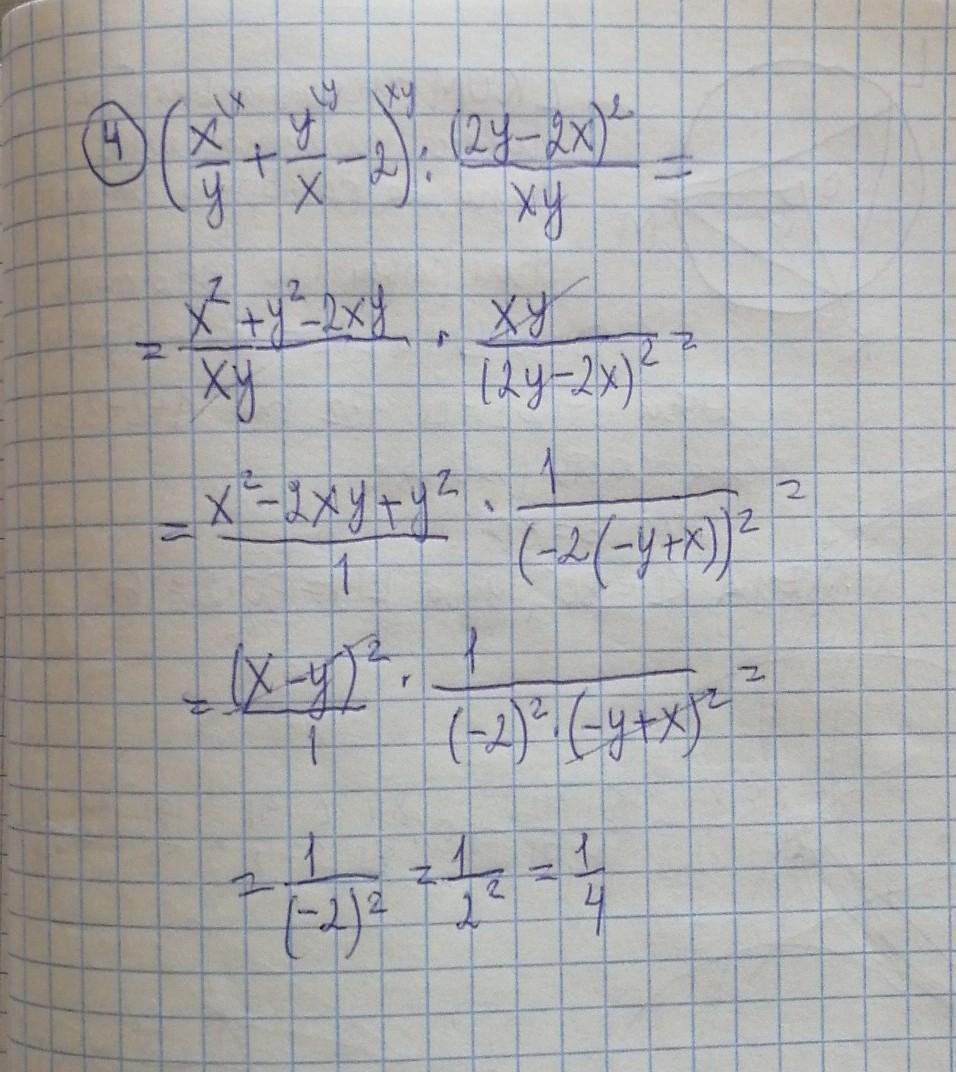 ④ (x/y \x + y/x \y − 2 \xy) : (2y−2x)²/xy =
= x²+y²−2xy/xy · xy/(2y−2x)² =
= x²−2xy+y²/1 · 1/(−2(−y+x))² =
= (x−y)²/1 · 1/(−2)²·(−y+x)² =
= 1/(−2)² = 1/2² = 1/4